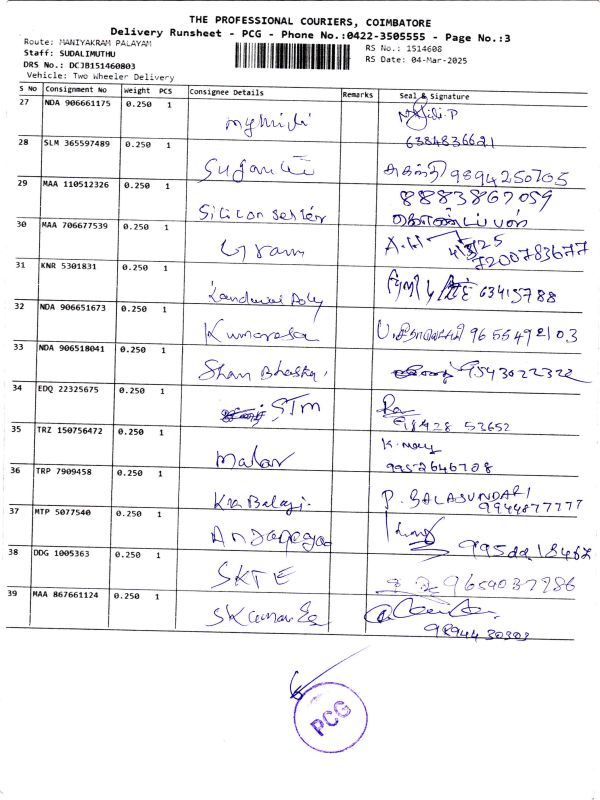 THE PROFESSIONAL COURIERS, COIMBATORE
Delivery Runsheet - PCG - Phone No.:0422-3505555 - Page No.:3
Route: MANIYAKRAM PALAYAM
RS No.: 1514608
Staff: SUDALIMUTHU
RS Date: 04-Mar-2025
DRS No.: DCJB151460803
Vehicle: Two Wheeler Delivery
S No Consignment No Weight PCS Consignee Details Remarks Seal & Signature
27 NDA 906661175 0.250 1
6384836621
28 SLM 365597489 0.250 1
9894250705
29 MAA 110512326 0.250 1 8883867059
Silicon
30 MAA 706677539 0.250 1
7200783677
31 KNR 5301831 0.250 1
32 NDA 906651673 0.250 1
Kumaresa 9655492103
33 NDA 906518041 0.250 1
Shan Bhaskar 9543022322
34 EDQ 22325675 0.250 1
STM
98428 52652
35 TRZ 150756472 0.250 1
Malar 9952646708
36 TRP 7909458 0.250 1
Kra Balaji. P. BALASUNDARI
9944877777
37 MTP 5077540 0.250 1
38 DDG 1005363 0.250 1
SKTE 9659037286
39 MAA 867661124 0.250 1
9894430303
PCG